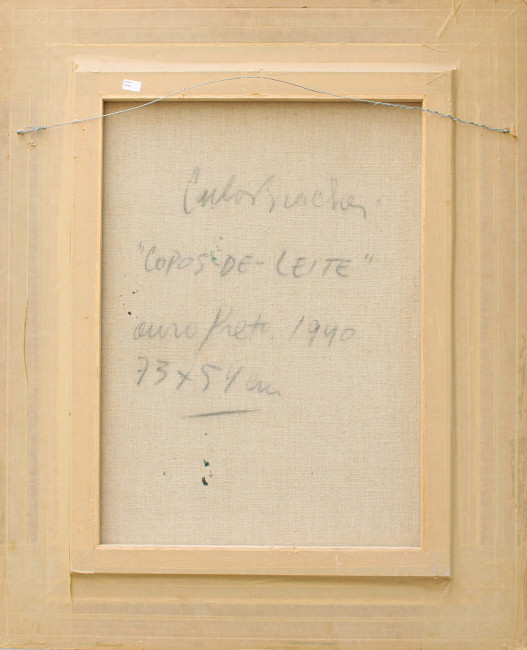 Carlos Bracher
"COPOS-DE-LEITE"
ouro Preto 1990
73x54 cm